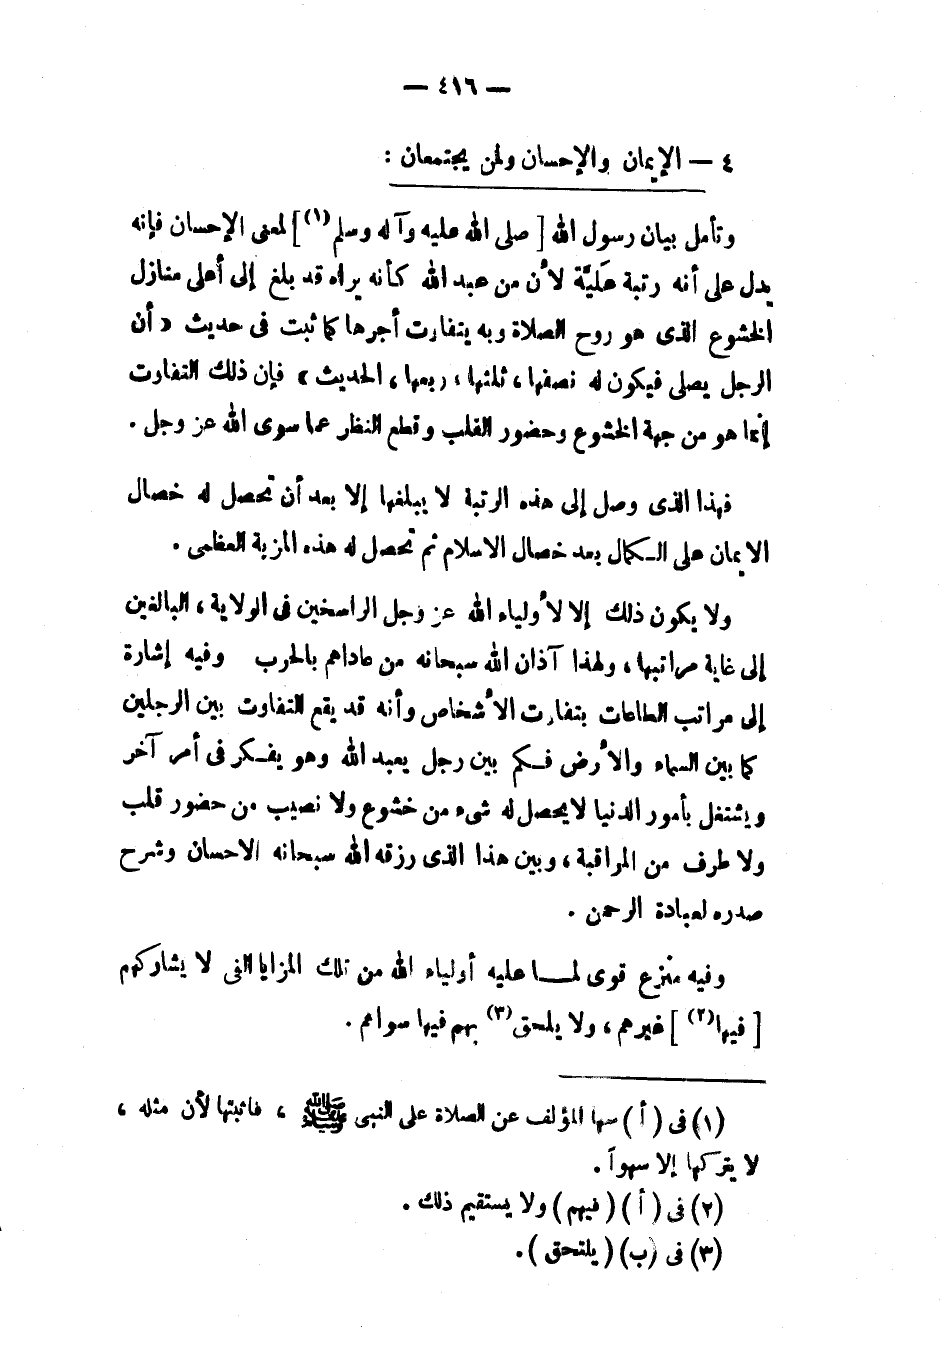 — ٤١٦ —
٤ — الإيمان والإحسان ولمن يجتمعان :
وتأمل بيان رسول الله [ صلى الله عليه وآله وسلم(١)] لمعنى الإحسان فإنه
يدل على أنه رتبة عَليَّة لأن من عبد الله كأنه يراه قد بلغ إلى أعلى منازل
الخشوع الذى هو روح الصلاة وبه يتفاوت أجرها كما ثبت فى حديث « أن
الرجل يصلى فيكون له نصفها ، ثلثها ، ربعها ، الحديث » فإن ذلك التفاوت
إنما هو من جهة الخشوع وحضور القلب وقطع النظر عما سوى الله عز وجل .
فهذا الذى وصل إلى هذه الرتبة لا يبلغها إلا بعد أن تحصل له خصال
الايمان على الكمال بعد خصال الاسلام ثم تحصل له هذه المزية العظمى .
ولا يكون ذلك إلا لأولياء الله عز وجل الراسخين فى الولاية ، البالغين
إلى غاية مراتبها ، ولهذا آذان الله سبحانه من عاداهم بالحرب وفيه إشارة
إلى مراتب الطاعات بتفاوت الأشخاص وأنه قد يقع التفاوت بين الرجلين
كما بين السماء والأرض فكم بين رجل يعبد الله وهو يفكر فى أمر آخر
ويشتغل بأمور الدنيا لايحصل له شىء من خشوع ولا نصيب من حضور قلب
ولا طرف من المراقبة ، وبين هذا الذى رزقه الله سبحانه الاحسان وشرح
صدره لعبادة الرحمن .
وفيه منزع قوى لما عليه أولياء الله من تلك المزايا التى لا يشاركهم
[ فيها(٢) ] غيرهم ، ولا يلحق(٣) بهم فيها سواهم .
(١) فى ( أ ) سها المؤلف عن الصلاة على النبى ﷺ ، فاثبتها لأن مثله ،
لا يتركها إلا سهواً .
(٢) فى ( أ ) ( فيهم ) ولا يستقيم ذلك .
(٣) فى (ب) ( يلتحق ) .